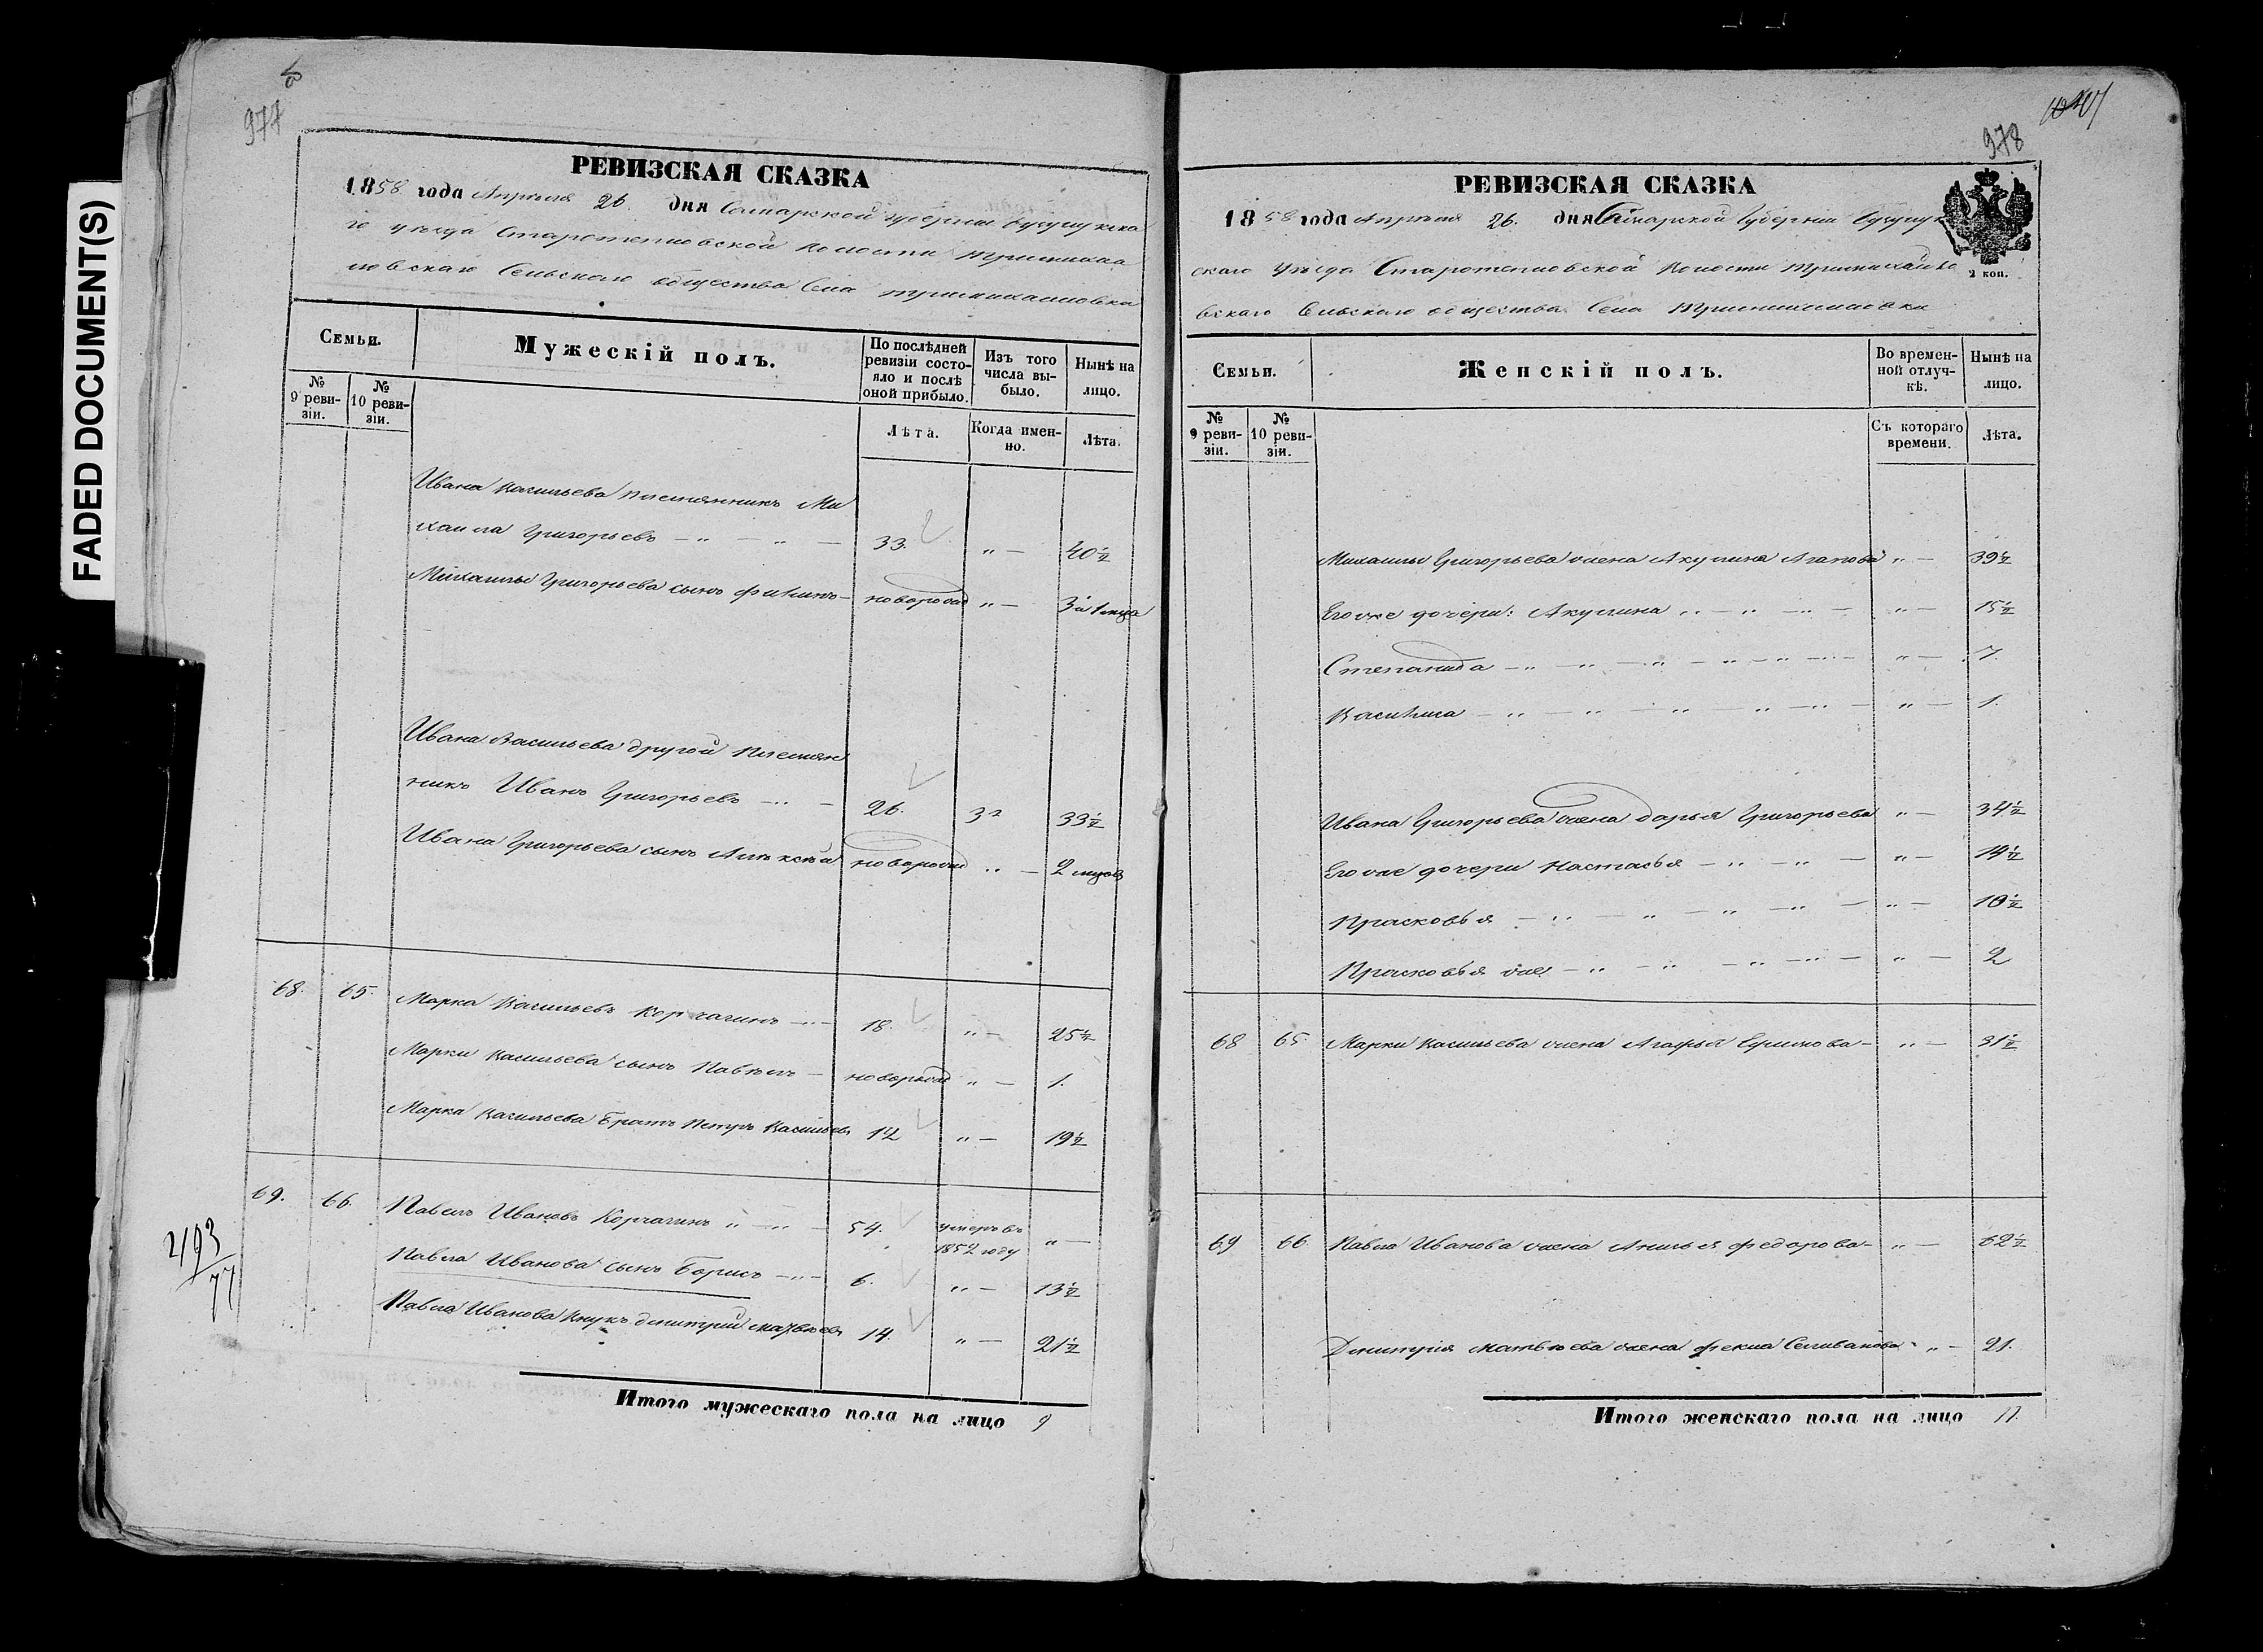 FADED DOCUMENT(S)
977
РЕВИЗСКАЯ СКАЗКА
1858 года Апреля 26. дня Самарской губернии Бузулукска
го уезда Старотепловской волости
ловскаго Сельскаго общества Села
Семьи.
Мужескій полъ.
По послѣдней ревизіи состояло и послѣ оной прибыло.
Изъ того числа выбыло.
Нынѣ на лицо.
№ 9 ревизіи.
№ 10 ревизіи.
Лѣта.
Когда именно.
Лѣта.
Ивана Васильева племянникъ Ми
хаила Григорьевъ 33. 40½
Михаилы Григорьева сынъ новорож 3 и 1 меца
Ивана Васильева другой племян
никъ Иванъ Григорьевъ 26. 33½
Ивана Григорьева сынъ Алексѣй новорож 2 мцов
68. 65. Марка Васильевъ Корчагинъ 18. 25½
Марки Васильева сынъ Павелъ новорож 1.
Марка Васильева братъ Петръ Васильевъ 12 19½
69. 66. Павелъ Ивановъ Корчагинъ 54. умеръ въ
1852 году
Павла Иванова сынъ Борисъ 6. 13½
2193/77
Павла Иванова внукъ Дмитрий Матвѣевъ 14. 21½
Итого мужескаго пола на лицо 9
978
РЕВИЗСКАЯ СКАЗКА
1858 года Апреля 26. дня Самарской Губернии Бузулук
скаго Уезда Старотепловской волости
2 коп.
вскаго Сельскаго общества Села
Семьи.
Женскій полъ.
Во временной отлучкѣ.
Нынѣ на лицо.
№ 9 ревизіи.
№ 10 ревизіи.
Съ котораго времени.
Лѣта.
Михаилы Григорьева жена Акулина Агапова 39½
Его же дочери: Акулина 15½
Степанида 7.
Василиса 1.
Ивана Григорьева жена Дарья Григорьева 34½
Его же дочери Настасья 14½
Прасковья 10½
Прасковья же 2
68 65 Марки Васильева жена Агафья 31½
69 66 Павла Иванова жена Федорова 62½
Дмитрия Матвѣева жена Фекла Селиванова 21.
Итого женскаго пола на лицо 11.